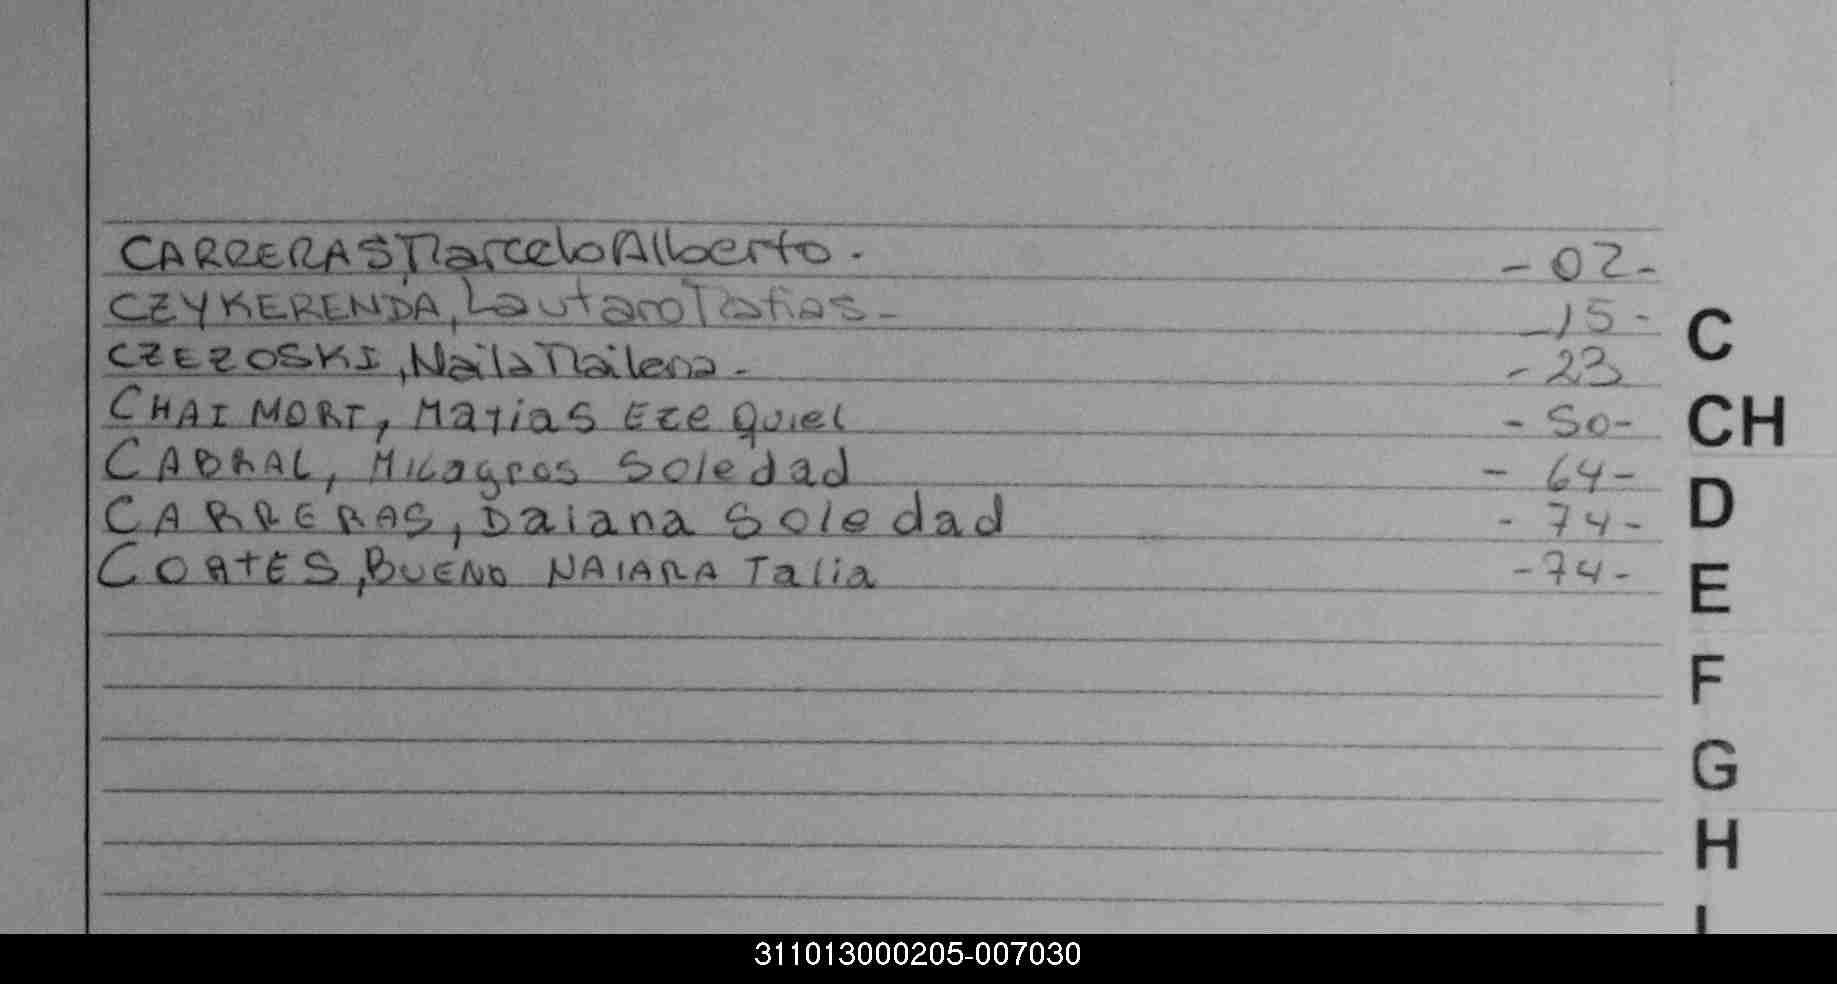 CARRERAS, Marcelo Alberto. -02-
CZYKERENDA, Lautaro Matias- -15-
CZEZOSKI, Naila Mailena. -23
CHAIMORT, Matias Ezequiel -50-
CABRAL, Milagros Soledad -64-
CARRERAS, Daiana Soledad -74-
CORTES, BUENO NAIARA Talia -74-
C
CH
D
E
F
G
H
I
311013000205-007030